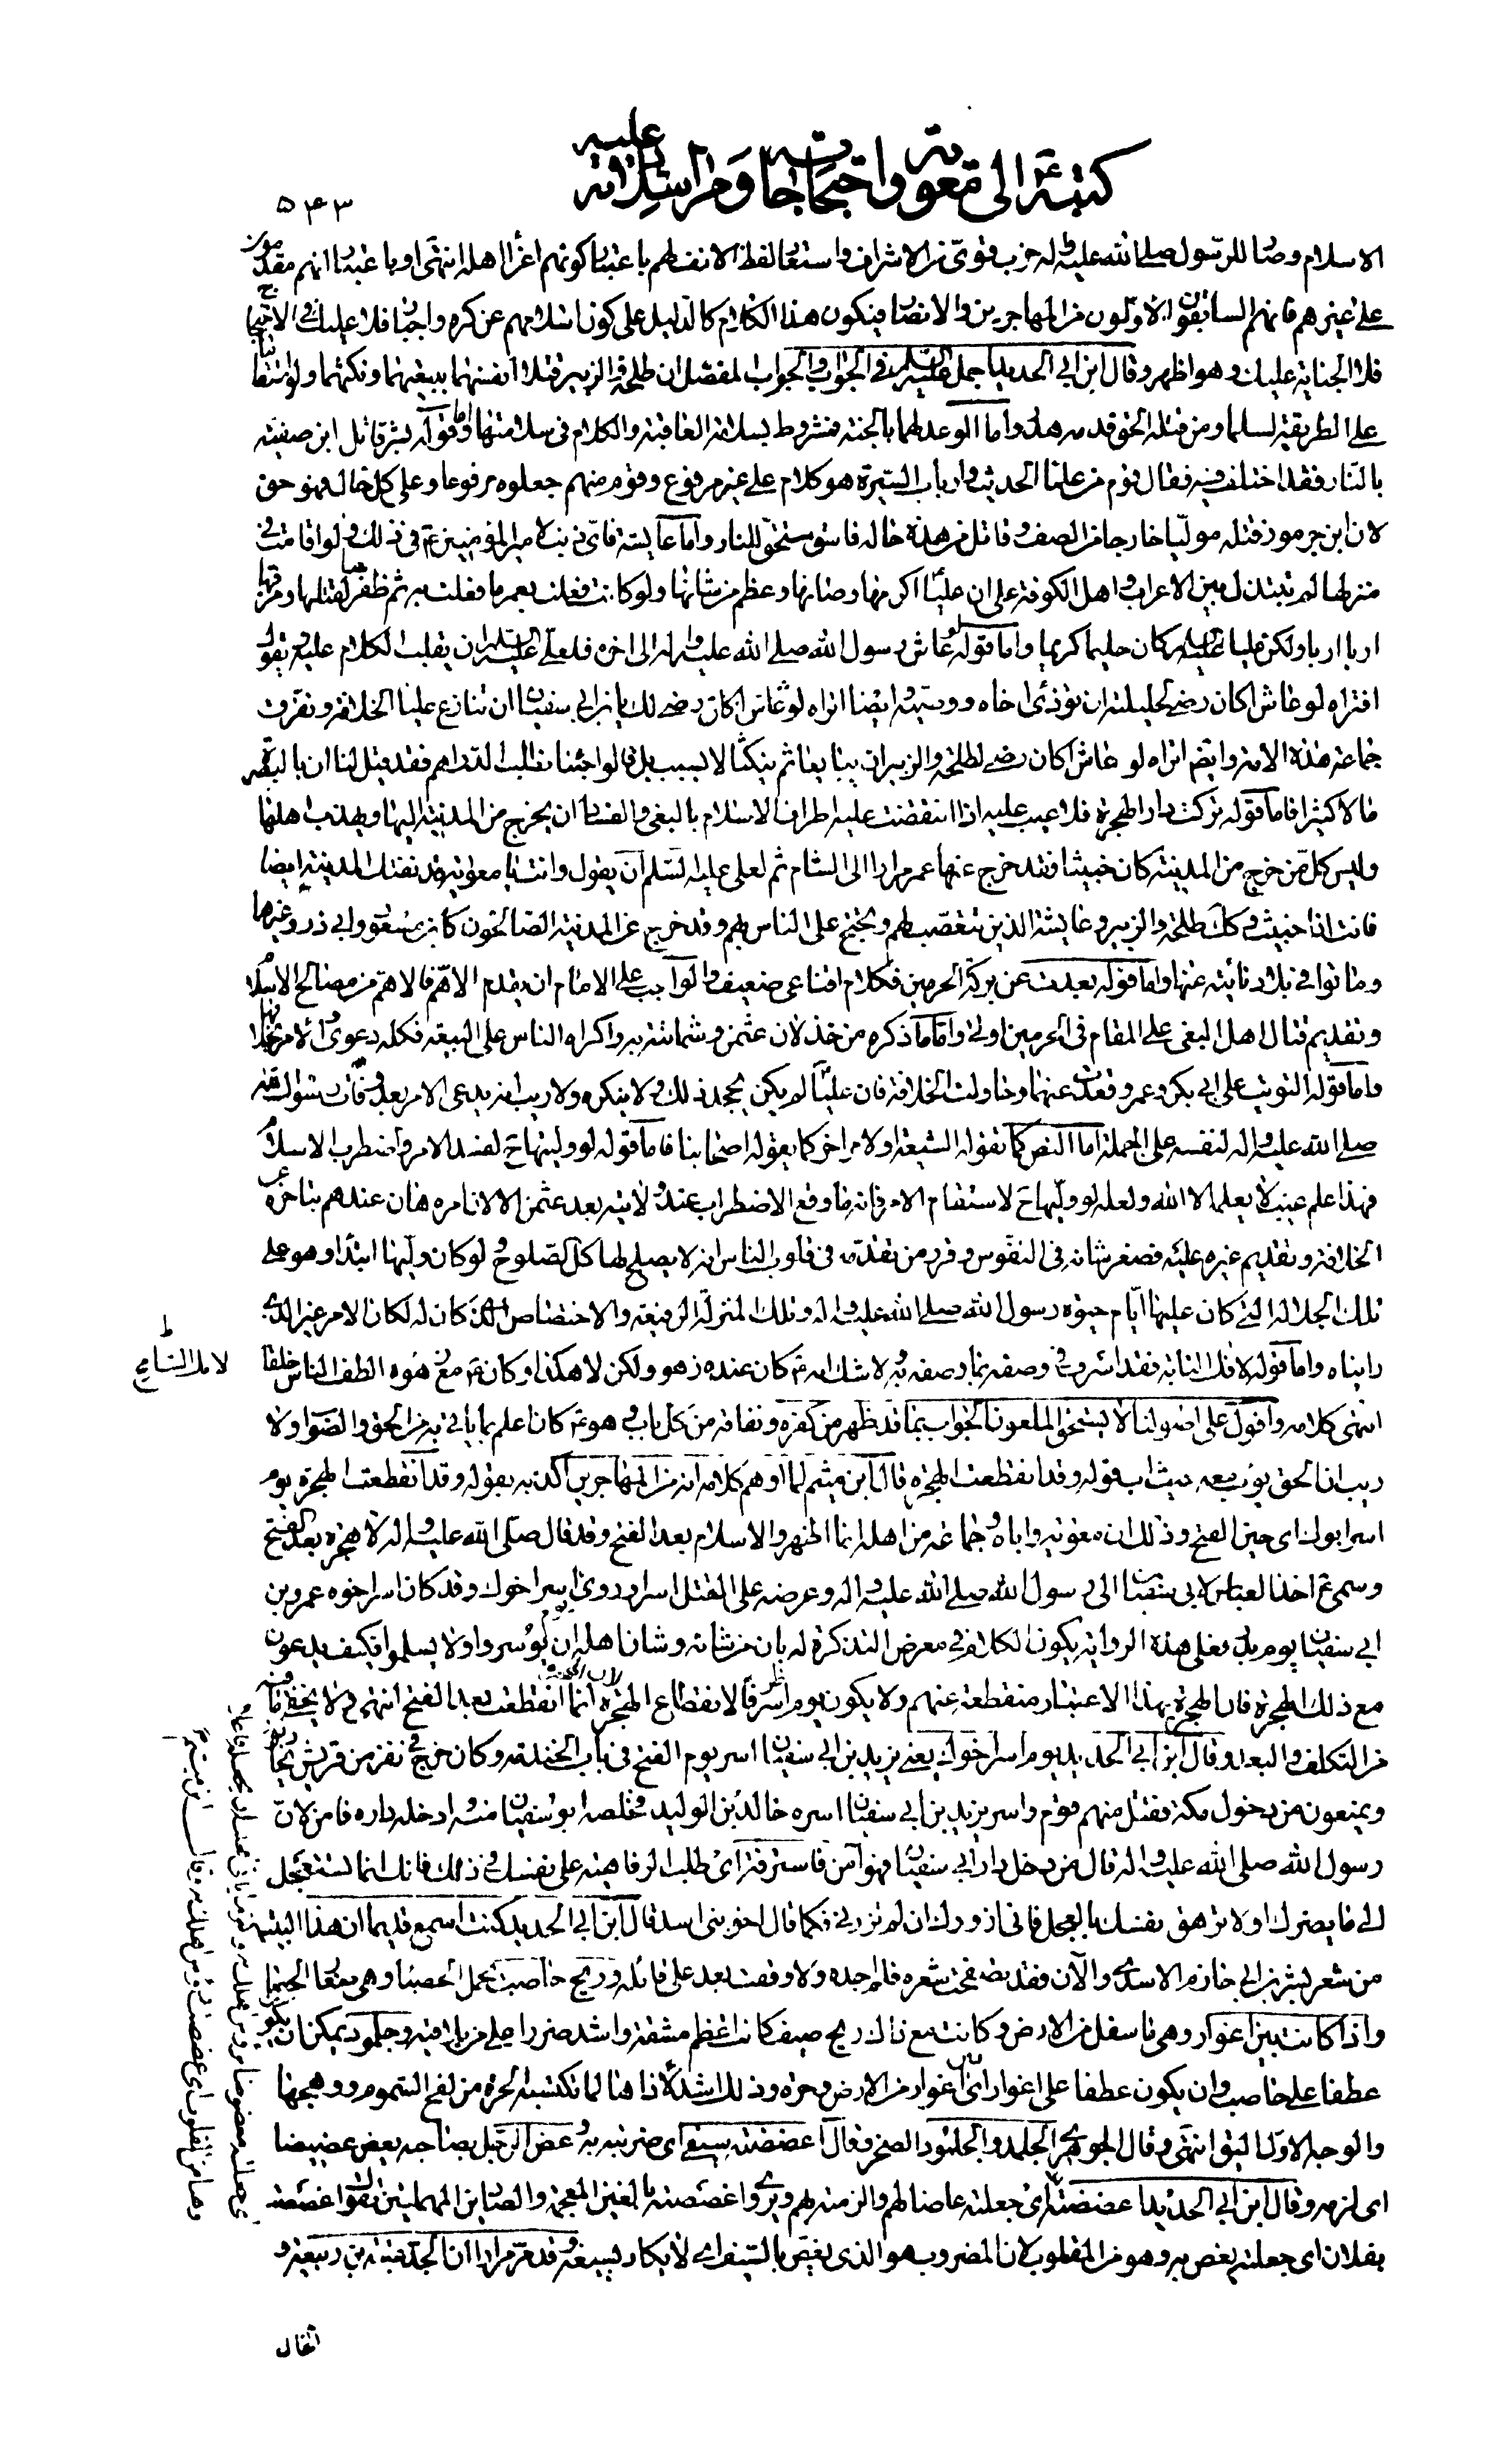 كتبه ع الى معوية واحتجاجاته عليه ومراسلاته
٥٤٣
الاسلام وصار للرسول صلى الله عليه واله حزب قوى من الاشراف واستعار لفظ الانف لهم باعتبار كونهم اعز اهله انتهى او باعتبار انهم مقدمون
على غيرهم فانهم السابقون الاولون من المهاجرين والانصار فيكون هذا الكلام كالدليل على كون اسلامهم عن كره واجبار فلا عليك في الاحتجاج
فلا الجناية عليك وهو اظهر وقال ابن ابي الحديد اجمل عليه السلام في الجواب والجواب المفصل ان طلحة والزبير قتلا انفسهما ببغيهما ونكثهما ولو استقاما
على الطريقة لسلما ومن قتله الحق فدمه هدر واما الوعد لهما بالجنة فمشروط بسلامة العاقبة والكلام في سلامتهما واما قوله بشر قاتل ابن صفية
بالنار فقد اختلف فيه فقال قوم من علماء الحديث وارباب السيرة هو كلام على غير مرفوع وقوم منهم جعلوه مرفوعا وعلى كل حال فهو حق
لان ابن جرموز قتله موليا خارجا من الصف وقاتل من هذه حاله فاسق مستحق للنار واما عايشة فاى ذنب لامير المؤمنين ع في ذلك ولو اقامت في
منزلها لم تبتذل بين الاعراب واهل الكوفة على ان عليا اكرمها وصانها وعظم من شانها ولو كانت فعلت بعمر ما فعلت به ثم ظفر بها لقتلها ومزقها
اربا اربا ولكن عليا عليه السلم كان حليما كريما واما قوله لو عاش رسول الله صلى الله عليه واله الى اخره فلعلى عليه السلام ان يقلب الكلام عليه ويقول
افتراه لو عاش اكان رضى لحليلته ان تؤذى اخاه ووصيه وايضا اتراه لو عاش اكان رضى لك يا بن ابي سفيان ان تنازع عليا الخلافة وتفرق
جماعة هذه الامة وايضا اتراه لو عاش اكان رضى لطلحة والزبير ان يبايعا ثم ينكثا لا لسبب بل قالوا جئنا نطلب الدراهم فقد قيل لنا ان بالبصرة
مالا كثيرا فاما قوله تركت دار الهجرة فلا عيب عليه اذا انتقضت عليه اطراف الاسلام بالبغى والفساد ان يخرج من المدينة اليها ويهذب اهلها
وليس كل من خرج من المدينة كان خبيثا فقد خرج عنها عمر مرارا الى الشام ثم لعلى عليه السلم ان يقول وانت يا معوية قد نفتك المدينة ايضا
فانت اذا خبيث وكذلك طلحة والزبير وعايشة الذين تتعصب لهم وتحتج على الناس بهم وقد خرج عن المدينة الصالحون كابن مسعود وابي ذر وغيرهما
وماتوا في بلاد نائية عنها واما قوله بعدت عن بركة الحرمين فكلام اقناعى ضعيف والواجب على الامام ان يقدم الاهم فالاهم من مصالح الاسلام
وتقديم قتال اهل البغى على المقام في الحرمين اولى واما ما ذكره من خذلان عثمن وشماتته به واكراه الناس على البيعة فكله دعوى والامر بخلافها
واما قوله التويت على ابي بكر وعمر وقعدت عنهما وحاولت الخلافة فان عليا لم يكن يجحد ذلك ولا ينكره ولا ريب انه يدعى الامر بعد وفات رسول الله
صلى الله عليه واله لنفسه على الجملة اما النص كما تقوله الشيعة او لامر اخر كما يقوله اصحابنا فاما قوله لو وليتها ح لفسد الامر واضطرب الاسلام
فهذا علم غيب لا يعلمه الا الله ولعله لو وليها ح لاستقام الامر فانه ما وقع الاضطراب عند ولايته بعد عثمن الا لان امره هان عندهم بتاخره عن
الخلافة وتقديم غيره عليه فصغر شانه في النفوس وقرر من تقدمه في قلوب الناس انه لا يصلح لها كل الصلوح ولو كان وليها ابتداء وهو على
تلك الجلالة التي كان عليها ايام حيوة رسول الله صلى الله عليه واله وتلك المنزلة الرفيعة والاختصاص الذى كان له لكان الامر غير الذى
رايناه واما قوله لانك الشامخ فقد اسرف في وصفه بما وصفه به ولا شك انه ع كان عنده زهو ولكن لا هكذا وكان ع مع زهوه الطف الناس خلقا
انتهى كلامه واقول على اصولنا لا يستحق الملعون الجواب بما قد ظهر من كفره ونفاقه من كل باب وهو ع كان اعلم بما ياتي به من الحق والصواب ولا
ريب ان الحق يدور معه حيث دار قوله وقد انقطعت الهجرة قال ابن ميثم لما اوهم كلامه انه من المهاجرين اكذبه بقوله وقد انقطعت الهجرة يوم
اسر ابوك اى حين الفتح وذلك ان معوية واباه وجماعة من اهله انما اظهروا الاسلام بعد الفتح وقد قال صلى الله عليه واله لا هجرة بعد الفتح
وسمى ع اخذ العباس لابي سفيان الى رسول الله صلى الله عليه واله وعرضه على القتل اسرا وروى يوم اسر اخوك وقد كان اسر اخوه عمرو بن
ابي سفيان يوم بدر فعلى هذه الرواية يكون الكلام في معرض التذكرة له بان من شانه وشان اهله ان يؤسروا ولا يسلموا فكيف يدعون
مع ذلك الهجرة فان الهجرة بهذا الاعتبار منقطعة عنهم ولا يكون يوم اسر ظرفا لانقطاع الهجرة لان الهجرة انما انقطعت بعد الفتح انتهى ولا يخفى ما فيه
من التكلف والبعد وقال ابن ابي الحديد يوم اسر اخوك يعنى يزيد بن ابي سفيان اسر يوم الفتح في باب الخندمة وكان خرج في نفر من قريش يحاربون
ويمنعون من دخول مكة فقتل منهم قوم واسر يزيد بن ابي سفيان اسره خالد بن الوليد فخلصه ابو سفيان منه وادخله داره فامن لان
رسول الله صلى الله عليه واله قال من دخل دار ابي سفيان فهو آمن فاسترفه اى اطلب الرفاهية على نفسك في ذلك فانك انما تستعجل
الى ما يضرك او لا ترهق نفسك بالعجل فاني ازورك ان لم تزرني فكما قال اخو بنى اسد قال ابن ابي الحديد كنت اسمع قديما ان هذا البيت
من شعر بشر بن ابي خازم الاسدى والآن فقد تصفحت شعره فلم اجده ولا وقفت بعد على قائله وريح حاصب تحمل الحصباء وهى صغار الحصى
واذا كانت بين اغوار وهى ما سفل من الارض وكانت مع ذلك ريح صيف كانت اعظم مشقة واشد ضررا على من تلاقيه وجلمود يمكن ان يكون
عطفا على حاصب وان يكون عطفا على اغوار اى بين اغوار من الارض وحرة وذلك اشد لاذاها لما تكتسبه الحرة من لفح السموم ووهجها
والوجه الاول اليق انتهى وقال الجوهرى الجلمد والجلمود الصخر وقال اعضضته بسيفى اى ضربته به وعض الرجل بصاحبه يعض عضيضا
اى لزمه وقال ابن ابي الحديد اعضضته اى جعلته عاضا لهم والزمته بهم ويروى اغصصته بالغين المعجمة والصادين المهملتين تقول اغصصت
بفلان اى جعلته يغص به وهو من المقلوب لان المضروب هو الذى يغص بالسيف اى لا يكاد يسيغه وقد مر مرارا ان الجد عتبة بن ربيعة و
لانك الشامخ ط
اى جعلته معضوضا برؤس اهلك
وقال ابن ميثم
وهذا من المقلوب اى عضضت رؤس اهلك به
الخال